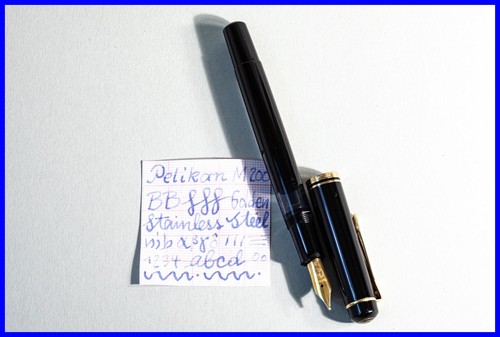 Pelikan M200
BB fff Golden
Stainless Steel
α γ δ
1234 abcd 00